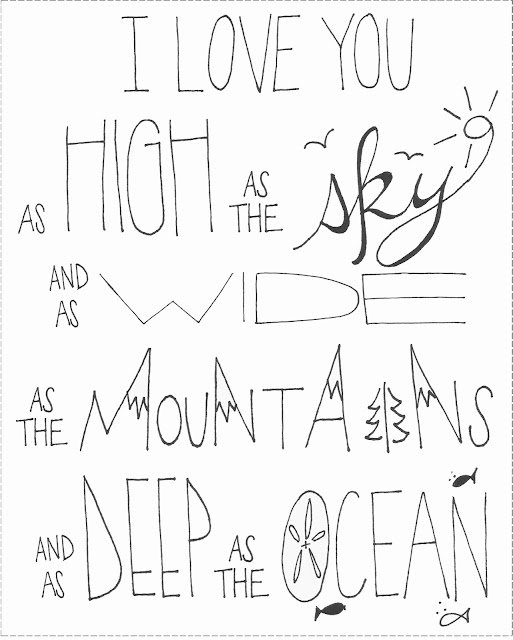 I LOVE YOU
AS HIGH AS THE sky
AND AS WIDE
AS THE MOUNTAINS
AND AS DEEP AS THE OCEAN